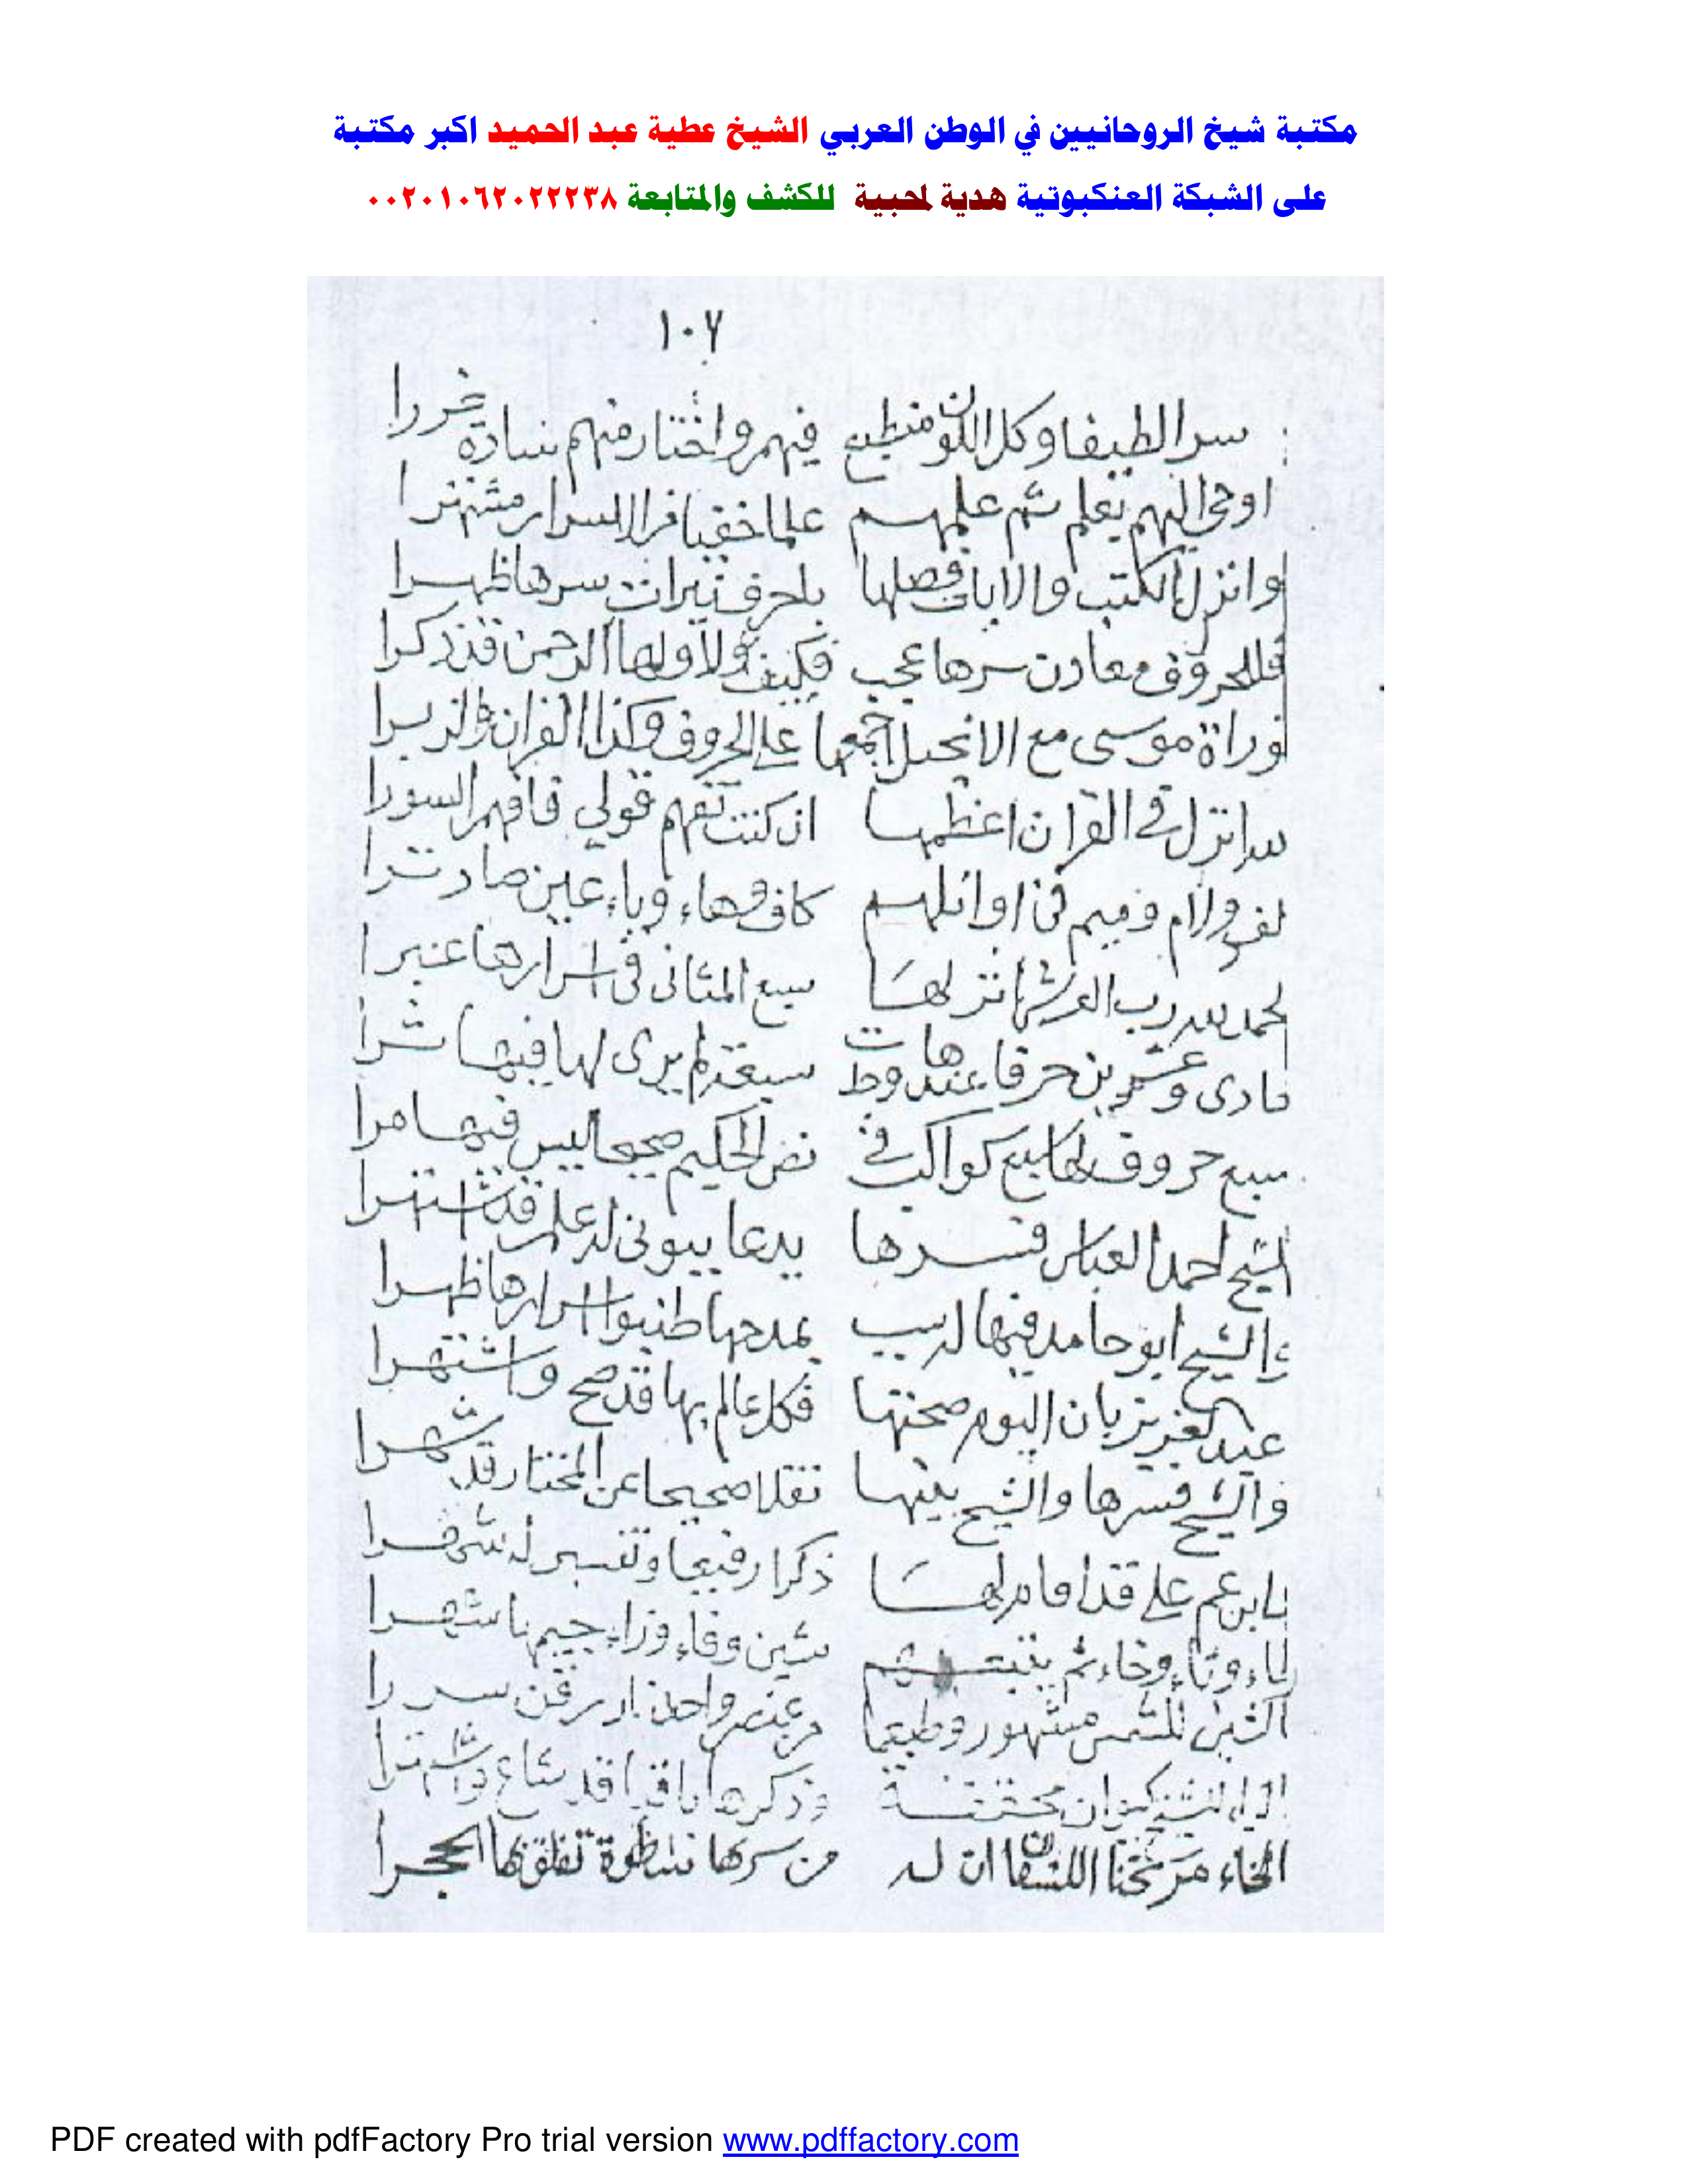 مكتبة شيخ الروحانيين في الوطن العربي الشيخ عطية عبد الحميد اكبر مكتبة
على الشبكة العنكبوتية هدية لمحبية للكشف والمتابعة ٠٠٢٠١٠٦٢٠٢٢٢٣٨
١٠٧
سرا لطيفا وكل الكون منطبع فيهم واختار منهم سادة غررا
اوحى اليهم بعلم ثم علمهم علما خفيا الاسرار مشتهرا
وانزل الكتب والايات فصلها باحرف نيرات سرها ظهرا
فللحروف معادن سرها عجب فكيف لا ولها الرحمن قد ذكرا
توراة موسى مع الانجيل اجمعها على الحروف وكذا القران والزبرا
سر انزل في القران اعظمها ان كنت تفهم قولي فافهم السورا
لف ولام وميم في اوائلهم كاف وهاء وياء عين صاد ترا
لحمد لله رب العرش انزلها سبع المثاني في اسرارها عبرا
حادى وعشرين حرفا سبعة لم يرى لها فيها
سبع حروف لها سبع كواكب في نص الحكيم صحيحا ليس فيها مرا
الشيخ احمد العباس فسرها يدعا ببونى له علم قد اشتهرا
والشيخ ابو حامد فيها له سبب بمدحها اسرارها ظهرا
عبد العزيز بان اليوم صحتها فكل عالم بها قد صح واشتهرا
والشيخ فسرها والشيخ بينها نقلا صحيحا عن المختار قد شهرا
بابن عم على قد اقام لها ذكرا رفيعا وتفسير له شرفا
ثاء وخاء ثم شين وفاء وزاء جيم يا شهرا
الشين للشمس مشهور وطبعها من عنصر واحد
وذكرها باقيا قد شاع
الخاء مريخنا ان له من سرها تفلق بها الحجرا
PDF created with pdfFactory Pro trial version www.pdffactory.com